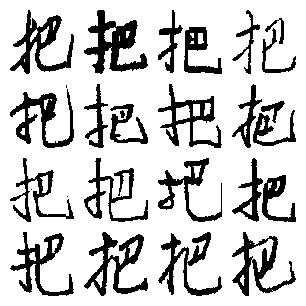 把把把把
把把把把
把把把把
把把把把